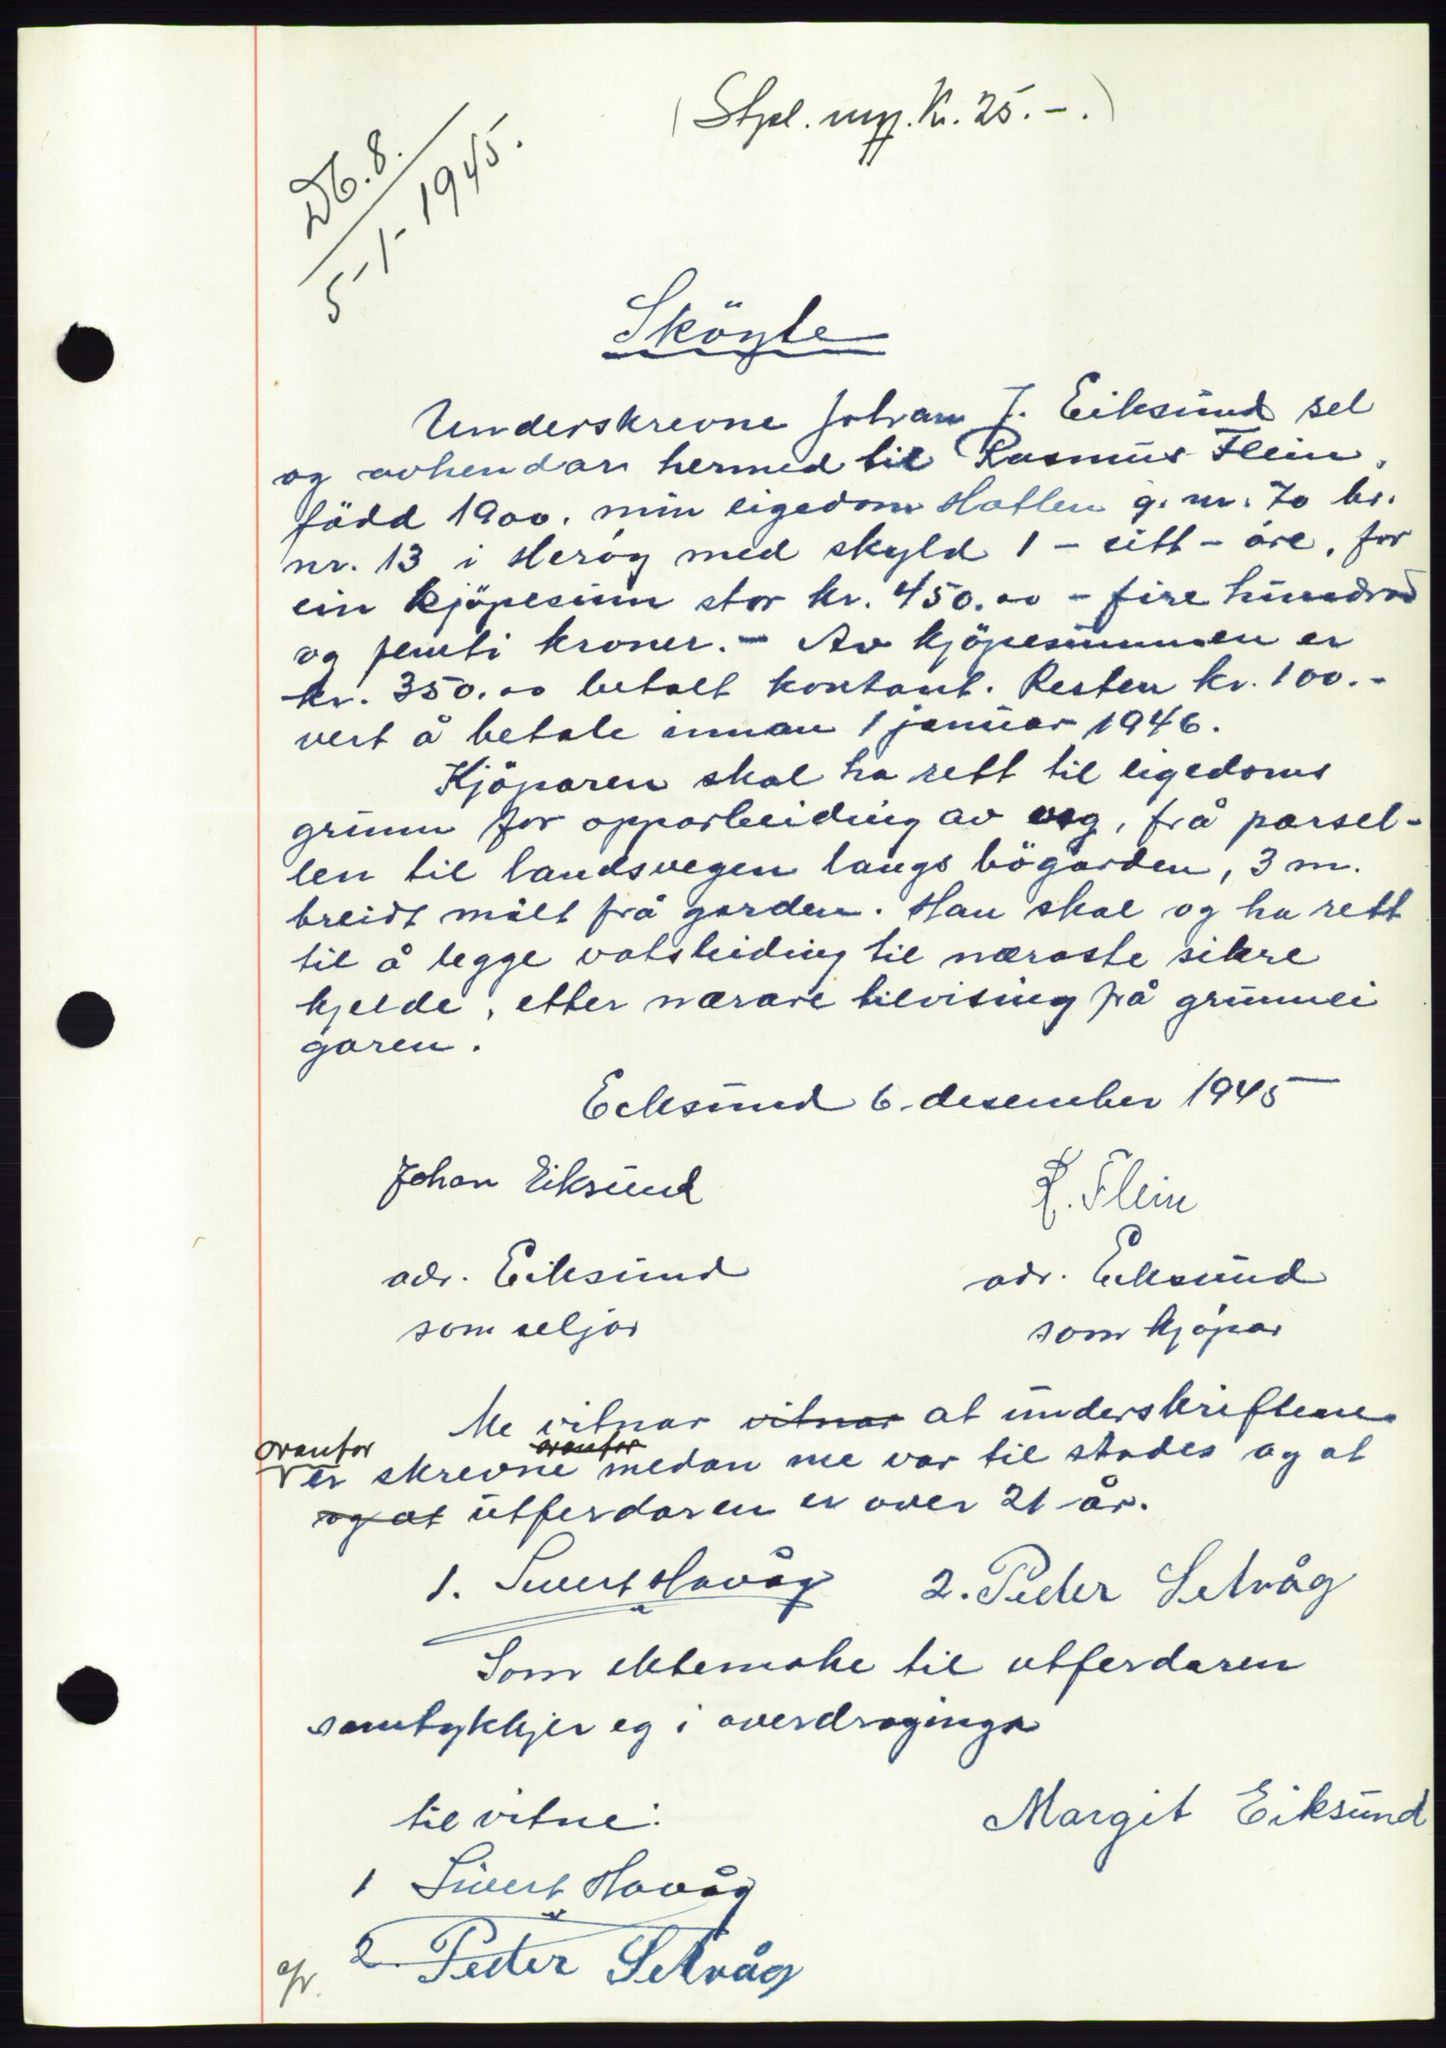 (Stpl. mrk. Kr. 25.-.)
Db. 8.
5-1-1945.
Sköyte
Underskrevne Johan J. Eiksund sel
og avhendar hermed til Rasmus Flein,
född 1900. min eigedom Hatlen g.nr. 70 br.
nr. 13 i Heröy med skyld 1 - eitt - öre, for
ein kjöpesum stor kr. 450.00 - fire hundrad
og femti kroner. - Av kjöpesummen er
kr. 350.00 betalt kontant. Resten kr. 100.-
vert å betale innan 1 januar 1946.
Kjöparen skal ha rett til eigedoms
grunn for opparbeiding av veg, frå parsel-
len til landsvegen langs bögarden, 3 m.
breidt målt frå garden. Han skal og ha rett
til å legge vatsleiding til næraste sikre
kjelde, etter nærare tilvising frå grunnei
garen.
Eiksund 6. desember 1945
Johan Eiksund
R. Flein
adr. Eiksund
adr. Eiksund
som seljar
som kjöpar
Me vitnar vitnar at underskriftene
ovanfor er skrevne ovanfor medan me var til stades og at
og at utferdaren er over 21 år.
1. Sivert Havåg 2. Peder Selvåg
Som ektemake til utferdaren
samtykkjer eg i overdraginga
til vitne:
Margit Eiksund
1 Sivert Havåg
2. Peder Selvåg